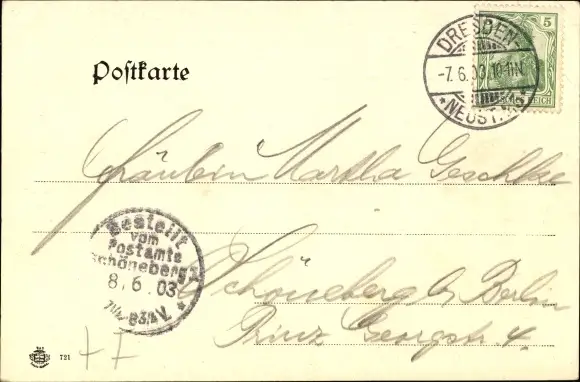 Postkarte
DRESDEN-
-7.6.03.10-11N.
*NEUST.
5
Fräulein Martha Geschke
Bestellt
vom
Postamte
Schöneberg
8.6.03
Schöneberg b. Berlin
Prinz Georgstr 4.
721